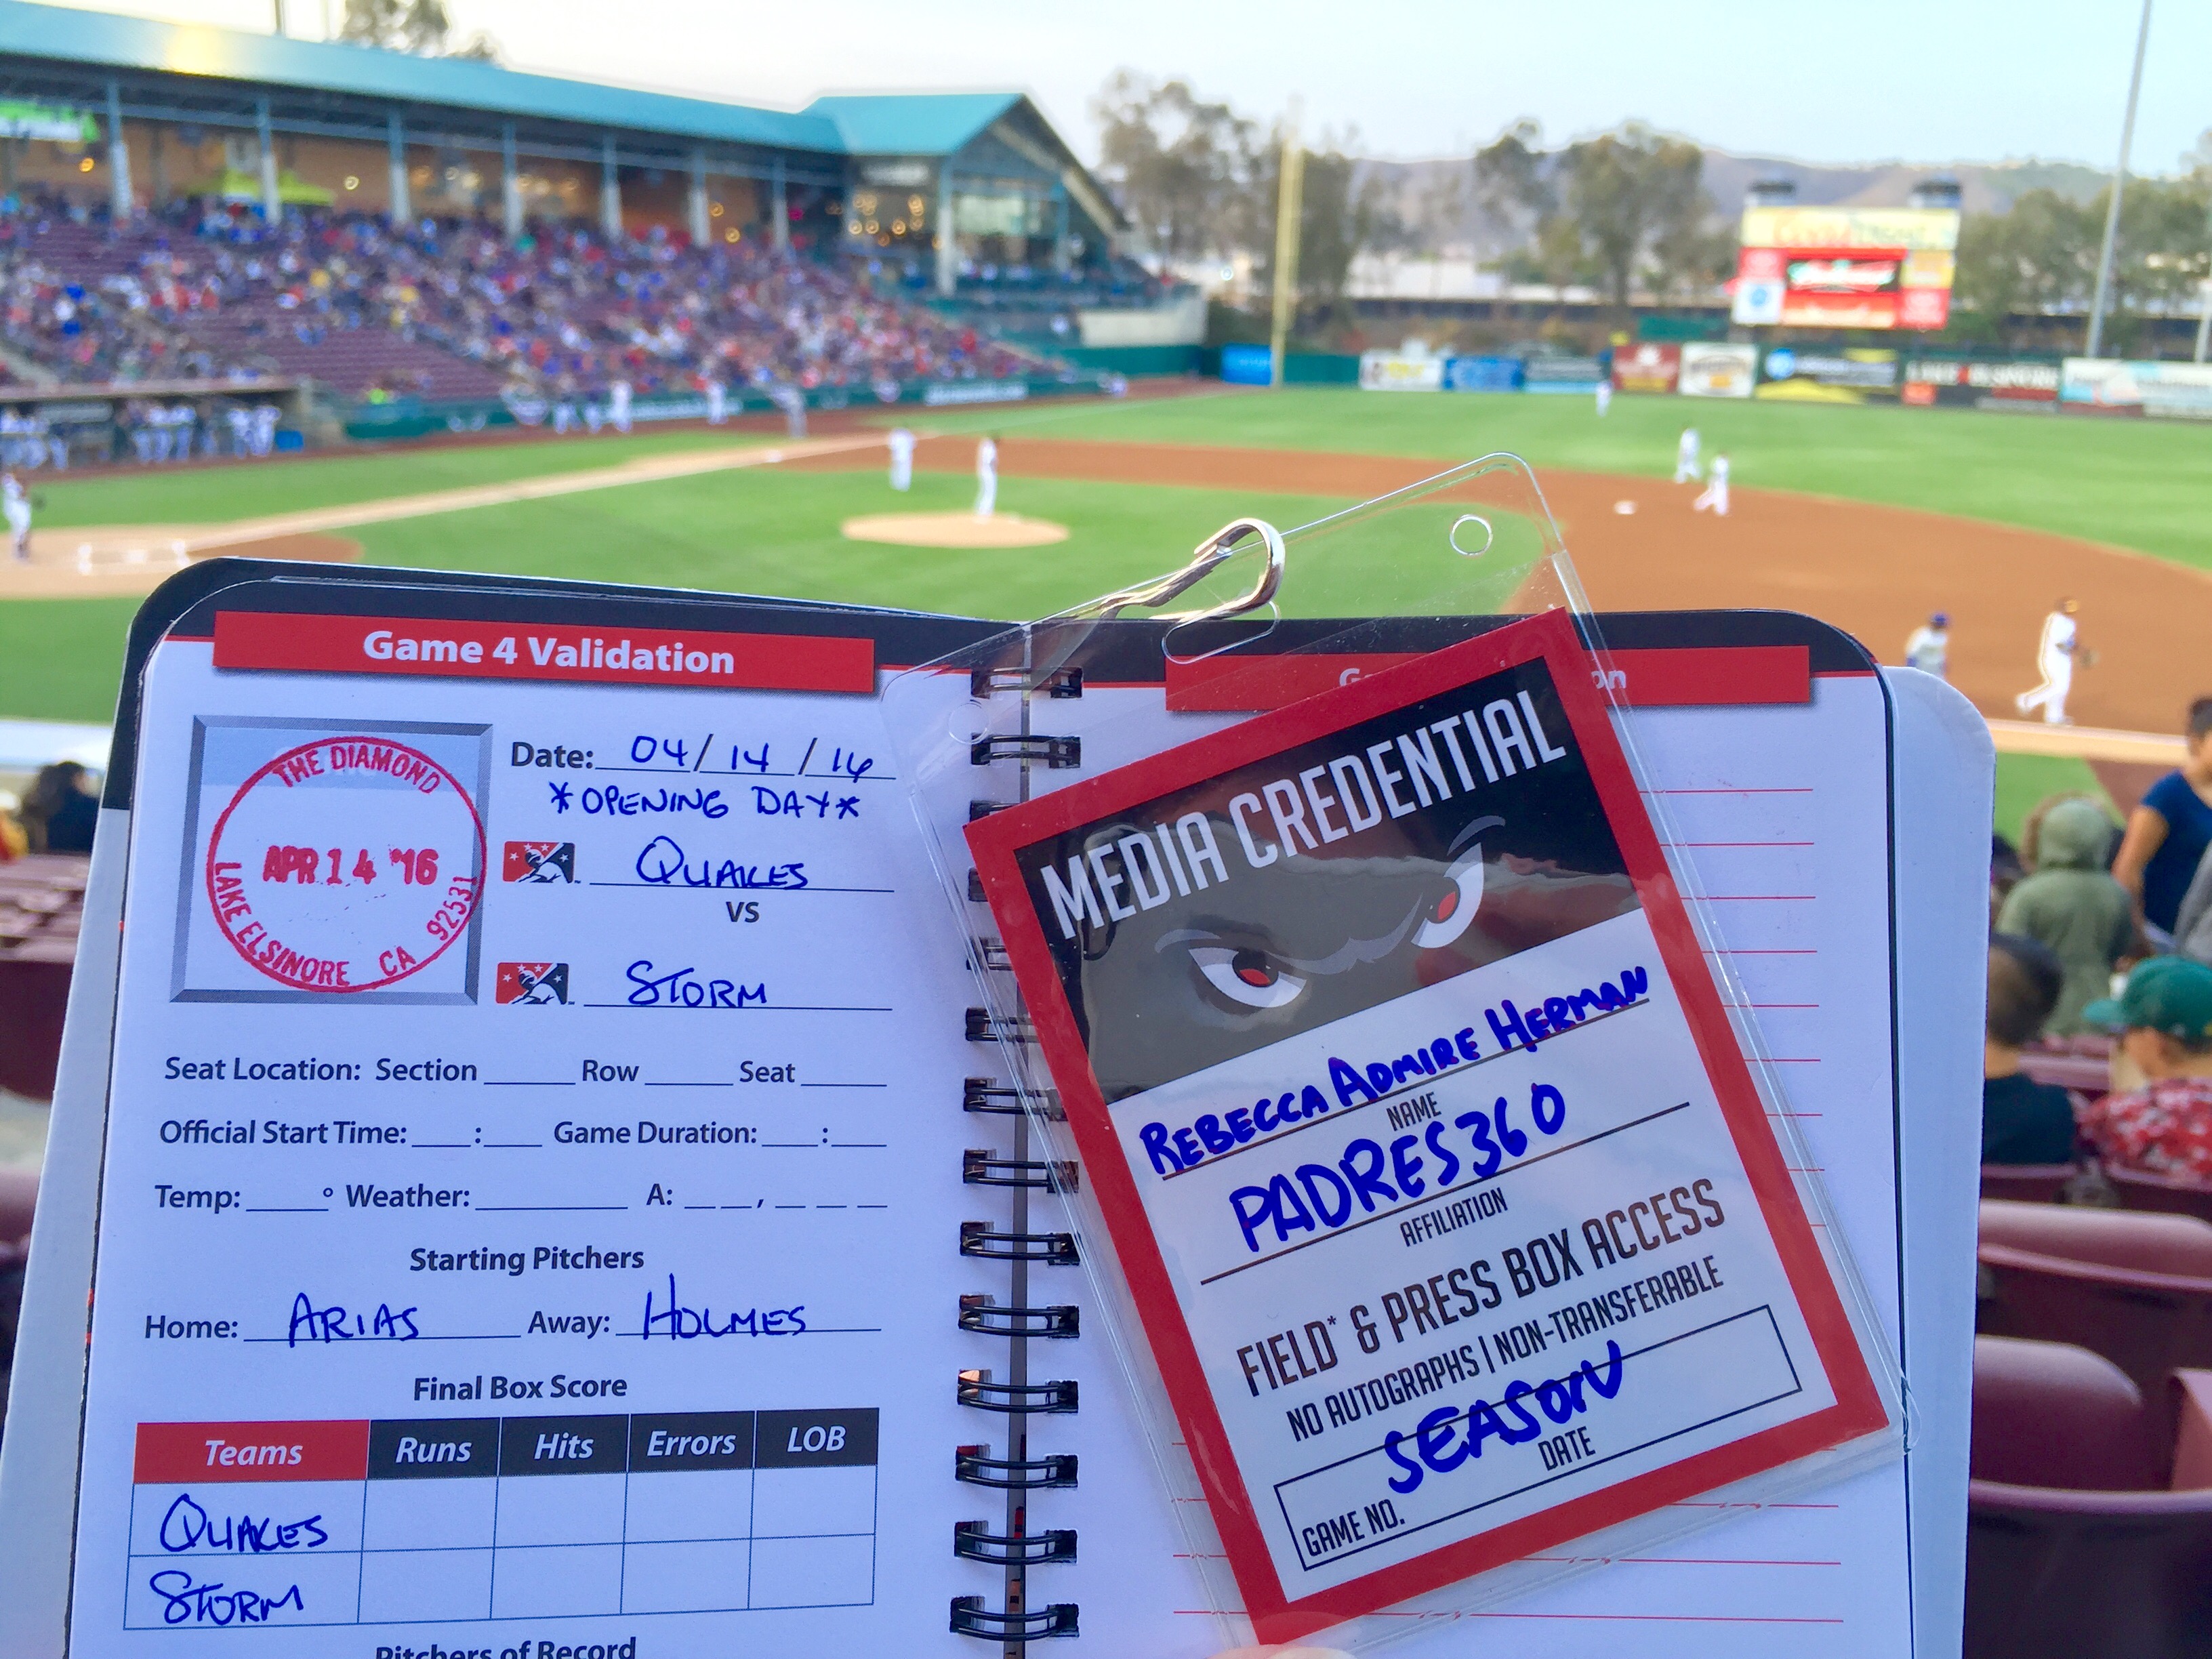 Game 4 Validation
THE DIAMOND
APR 14 '16
LAKE ELSINORE CA 92531
Date: 04/14/16
*OPENING DAY*
QUAKES
VS
STORM
Seat Location: Section ____ Row ____ Seat ____
Official Start Time: ___:___ Game Duration: ___:___
Temp: ____° Weather: ________ A: __ __, __ __ __
Starting Pitchers
Home: ARIAS Away: HOLMES
Final Box Score
Teams Runs Hits Errors LOB
QUAKES
STORM
Pitchers of Record
MEDIA CREDENTIAL
REBECCA ADMIRE HERMAN
NAME
PADRES360
AFFILIATION
FIELD* & PRESS BOX ACCESS
NO AUTOGRAPHS | NON-TRANSFERABLE
SEASON
GAME NO. DATE